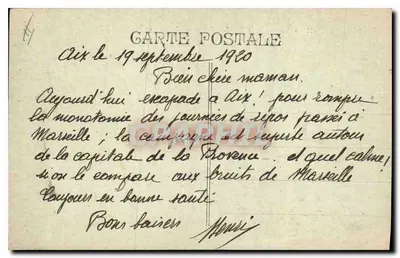 CARTE POSTALE
Aix le 19 septembre 1920
Bien chère maman.
Aujourd'hui escapade à Aix! pour rompre
la monotonie des journées de repos passées à
Marseille; la campagne est superbe autour
de la capitale de la Provence .. et quel calme!
si on le compare aux bruits de Marseille
Toujours en bonne santé
Bons baisers Henri